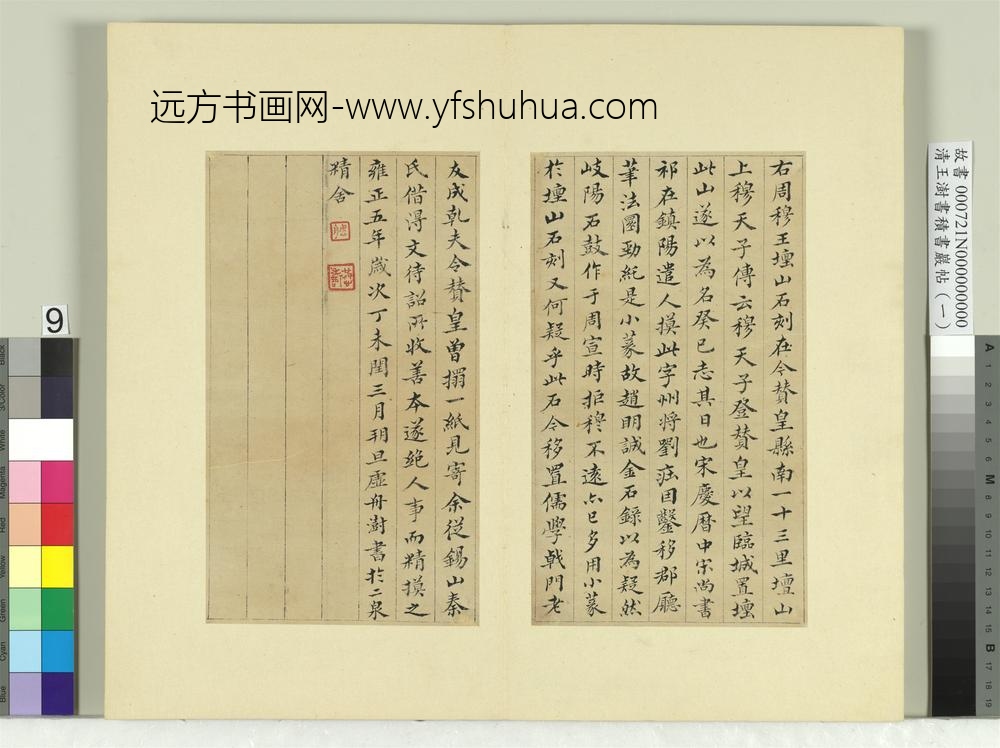 远方书画网-www.yfshuhua.com
故書 000721N000000000
清王澍書積書巖帖（一）
右周穆王壇山石刻在今贊皇縣南一十三里壇山
上穆天子傳云穆天子登贊皇以望臨城置壇
此山遂以為名癸巳志其日也宋慶曆中宋尚書
祁在鎮陽遣人摸此字州將劉莊因鑿移郡廳
筆法圓勁純是小篆故趙明誠金石錄以為疑然
岐陽石鼓作于周宣時拒穆不遠亦已多用小篆
於壇山石刻又何疑乎此石今移置儒學戟門老
友成乾夫令贊皇曾搨一紙見寄余從錫山秦
氏借得文待詔所收善本遂絕人事而精摸之
雍正五年歲次丁未閏三月朔旦虛舟澍書於二泉
精舍
9
Blue
Cyan
Green
Yellow
Red
Magenta
White
3/Color
Black
A 1 2 3 4 5 6 M 8 9 10 11 12 13 14 15 B 17 18 19